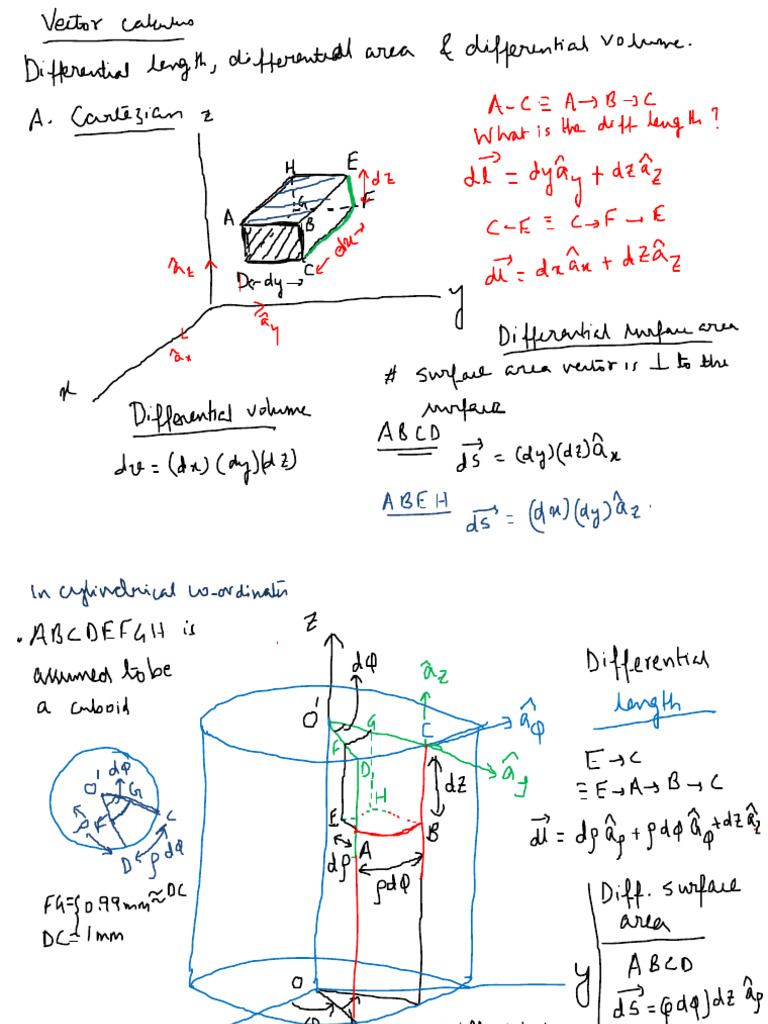 Vector calculus
Differential length, differential area & differential volume.
A. Cartezian
z
A-C ≡ A→B→C
What is the diff length?
d\vec{l} = dy â_y + dz â_z
C-E ≡ C→F→E
d\vec{l} = dx âx + dz â_z
H
E
dz
G
F
A
B
dx
C
D
dy
â_z
â_y
â_x
y
x
Differential surface area
# surface area vector is ⊥ to the
surface
ABCD
d\vec{s} = (dy)(dz) â_x
ABEH
d\vec{s} = (dx)(dy) â_z.
Differential volume
dv = (dx)(dy)(dz)
In cylindrical co-ordinates
. ABCDEFGH is
assumed to be
a cuboid
z
dφ
â_z
O'
G
C
â_φ
F
D
â_ρ
dz
H
E
B
dρ
A
ρdφ
O
y
dφ
O'
G
C
ρ
D
ρdφ
FG = 0.99mm ≈ DC
DC = 1mm
Differential
length
E→C
≡ E→A→B→C
d\vec{l} = dρ â_ρ + ρdφ â_φ + dz â_z
Diff. surface
area
ABCD
d\vec{s} = (ρdφ)dz â_ρ